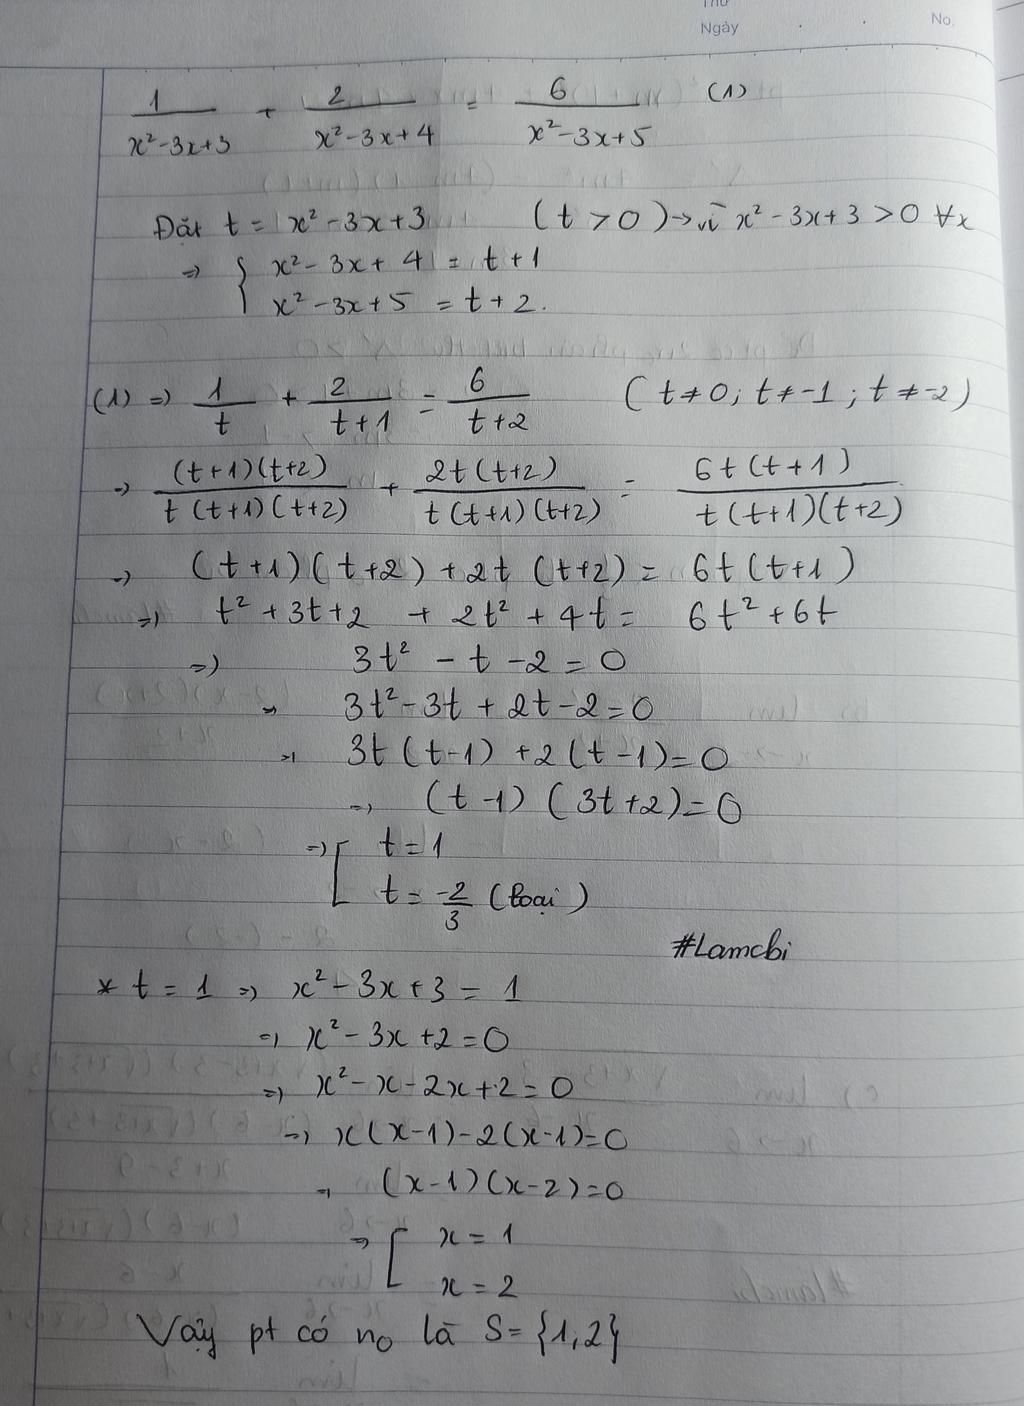 Thứ
Ngày . . No.
1/(x²-3x+3) + 2/(x²-3x+4) = 6/(x²-3x+5) (1)
Đặt t = x²-3x+3 (t>0) → vì x²-3x+3>0 ∀x
=> { x²-3x+4 = t+1
x²-3x+5 = t+2.
(1) => 1/t + 2/(t+1) = 6/(t+2) (t≠0; t≠-1; t≠-2)
=> (t+1)(t+2)/(t(t+1)(t+2)) + 2t(t+2)/(t(t+1)(t+2)) = 6t(t+1)/(t(t+1)(t+2))
=> (t+1)(t+2)+2t(t+2) = 6t(t+1)
=> t²+3t+2 + 2t²+4t = 6t²+6t
=> 3t²-t-2=0
=> 3t²-3t+2t-2=0
=> 3t(t-1)+2(t-1)=0
=> (t-1)(3t+2)=0
=> [ t=1
t = -2/3 (loại)
#Lamcbi
* t = 1 => x²-3x+3 = 1
=> x²-3x+2=0
=> x²-x-2x+2=0
=> x(x-1)-2(x-1)=0
=> (x-1)(x-2)=0
=> [ x = 1
x = 2
Vậy pt có no là S={1,2}